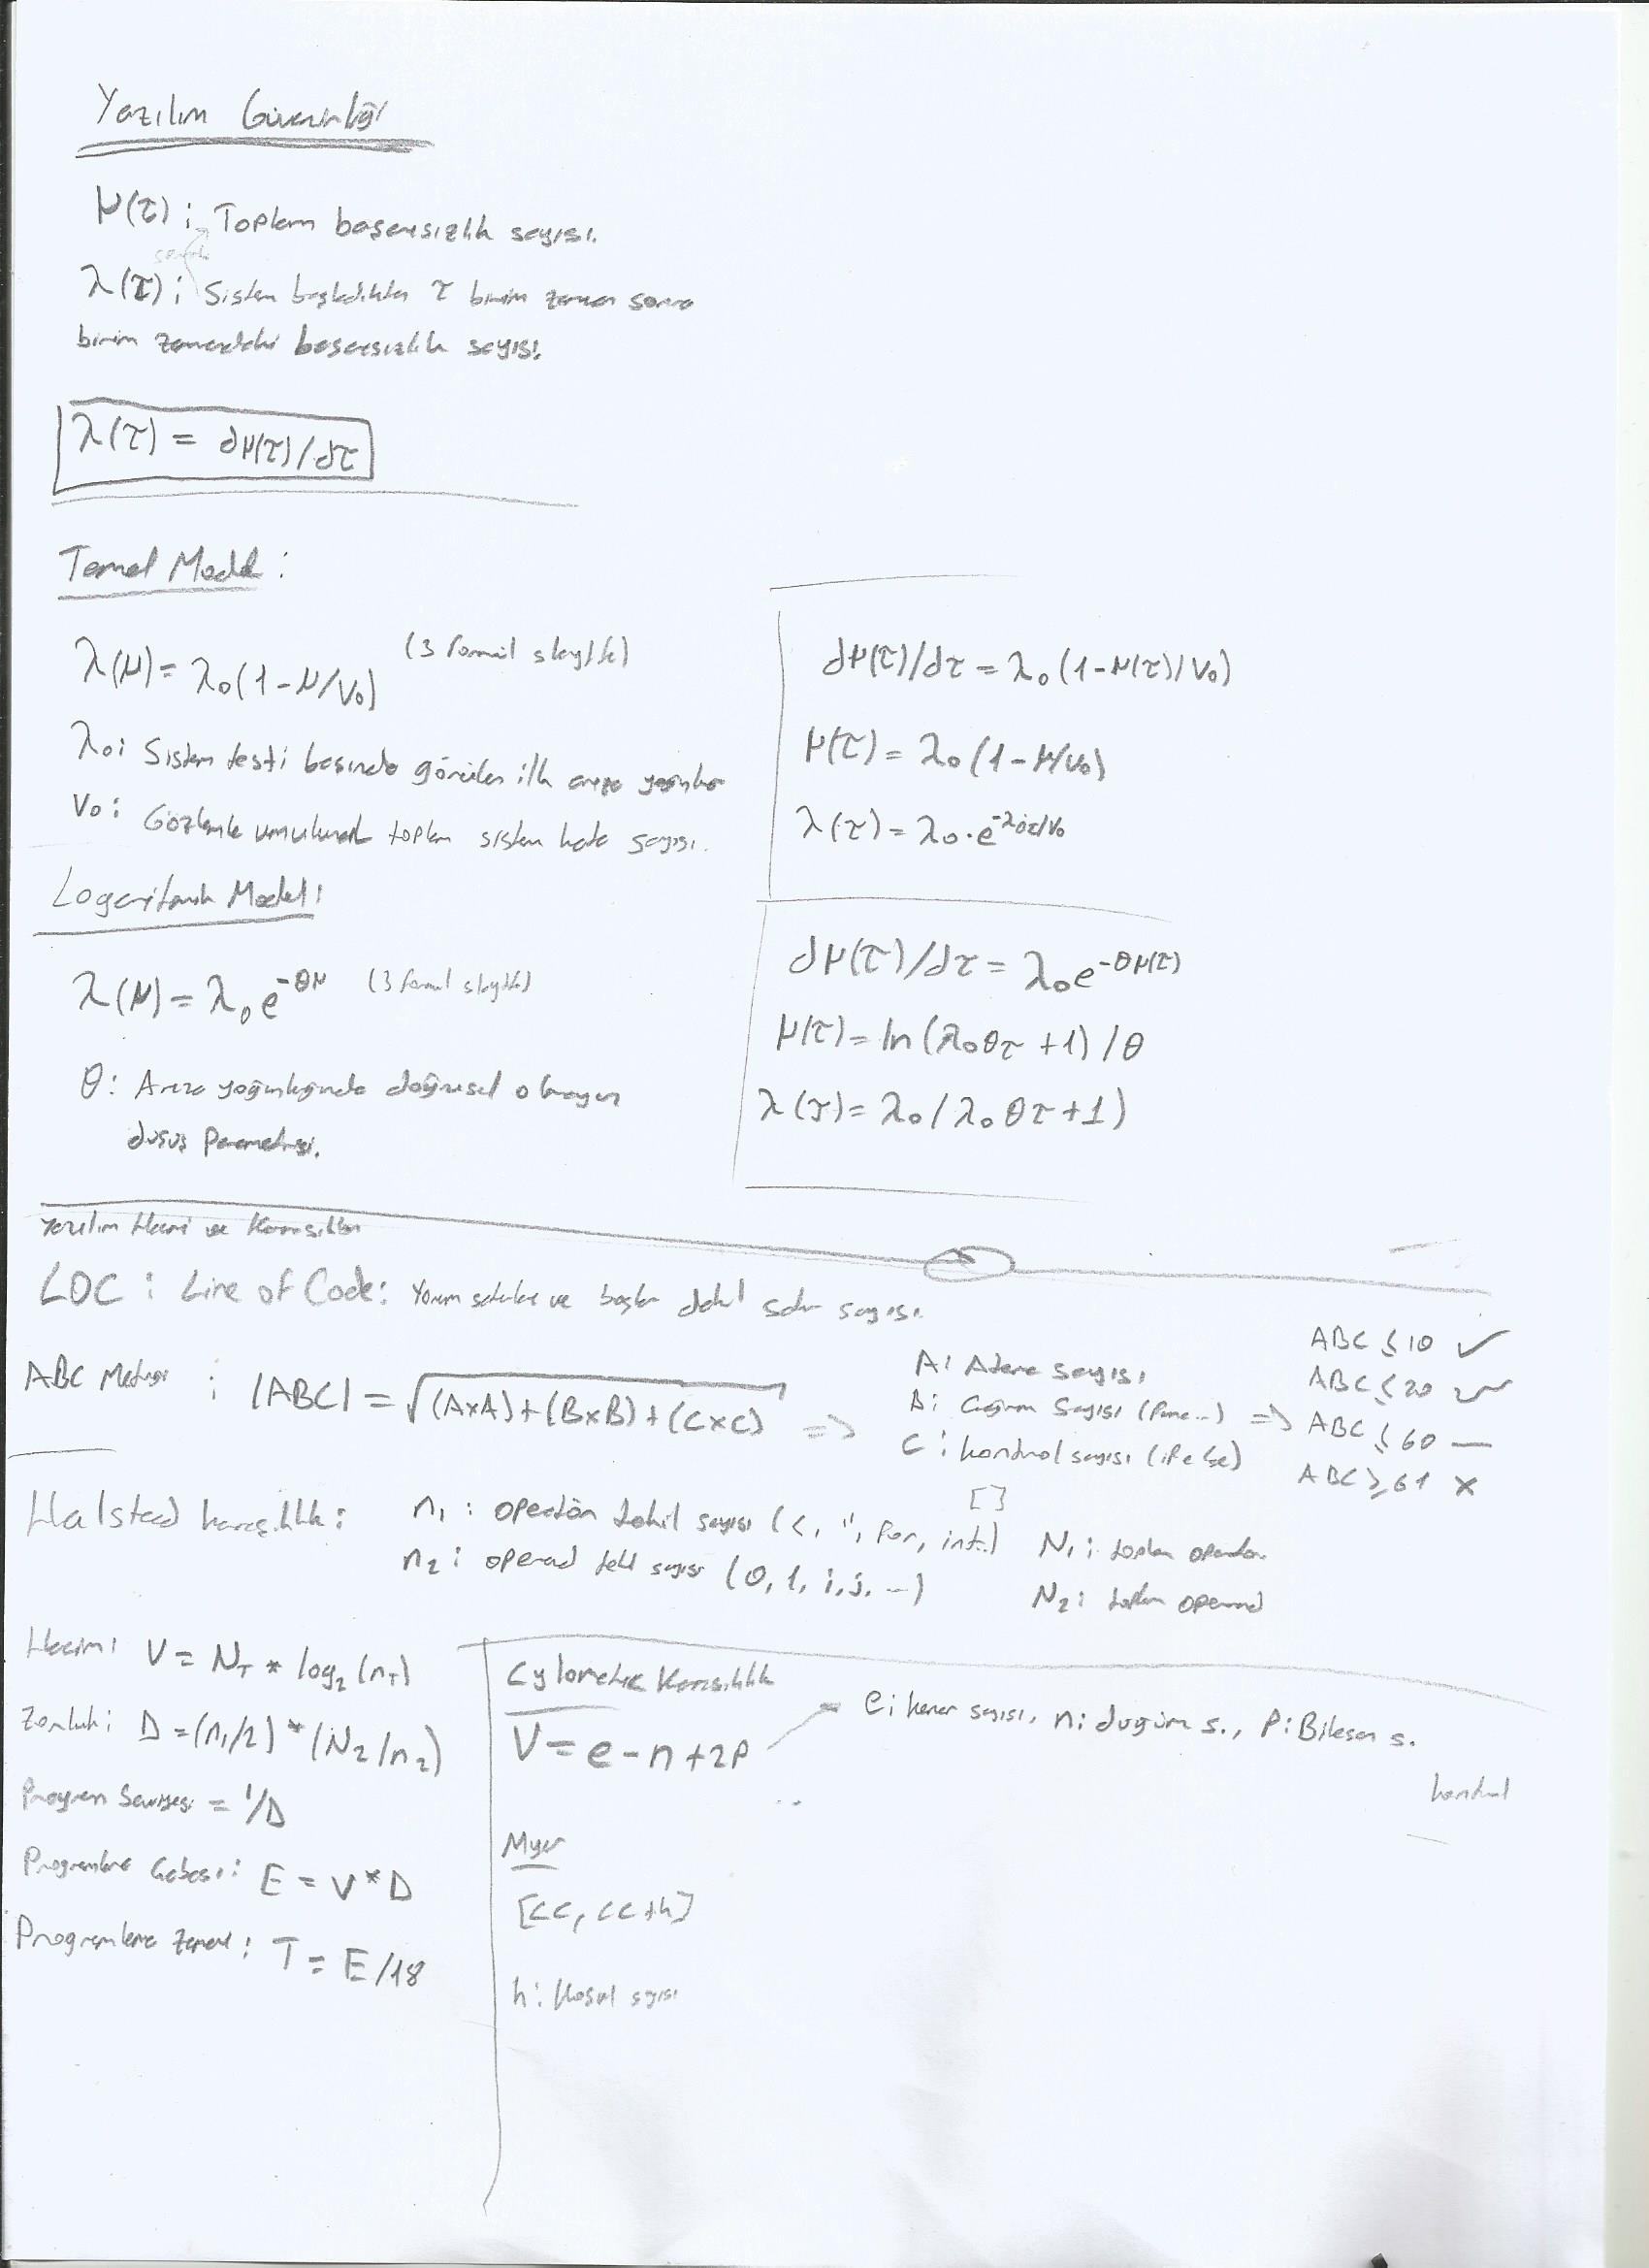 Yazılım Güvenirliği
μ(τ) : Toplam başarısızlık sayısı.
λ(τ) : Sistem başladıktan τ birim zaman sonra
birim zamandaki başarısızlık sayısı.
λ(τ) = dμ(τ)/dτ
Temel Model :
λ(μ) = λ₀(1-μ/V₀) (3 formül slaytta)
λ₀: Sistem testi başında görülen ilk arıza yoğunluğu
V₀ : Gözlemle umulunan toplam sistem hata sayısı.
dμ(τ)/dτ = λ₀(1-μ(τ)/V₀)
μ(τ) = λ₀(1-μ/V₀)
λ(τ) = λ₀.e^-λ₀τ/V₀
Logaritmik Model:
λ(μ) = λ₀e^-θμ (3 formül slaytta)
θ: Arıza yoğunluğunda doğrusal olmayan
düşüş Parametresi.
dμ(τ)/dτ = λ₀e^-θμ(τ)
μ(τ) = ln(λ₀θτ+1)/θ
λ(τ) = λ₀/λ₀θτ+1)
Yazılım Hacmi ve Karmaşıklığı
LOC : Line of Code: Yorum satırları ve boşlar dahil satır sayısı.
ABC Metriği : |ABC| = √(A×A)+(B×B)+(C×C) =>
A: Atama sayısı
B: Çağırım Sayısı (func..) =>
C : kontrol sayısı (if else)
ABC ≤ 10 ✓
ABC ≤ 20 ✓
ABC ≤ 60 —
ABC ≥ 61 x
Halstead karmaşıklık:
n₁ : operatör tekil sayısı (<, ", for, int..) []
n₂ : operand tekil sayısı (0, 1, i, j, ...)
N₁ : toplam operatör
N₂ : toplam operand
Hacim: V = N_T * log₂(n_T)
Zorluk: D = (n₁/2) * (N₂/n₂)
Program Seviyesi = 1/D
Programlama Çabası: E = V*D
Programlama Zamanı : T = E/18
Cylometik Karmaşıklık
V = e-n+2P
e: kenar sayısı, n: düğüm s., P: Bileşen s.
kontrol
Myer
[CC, CC+h]
h: Koşul sayısı